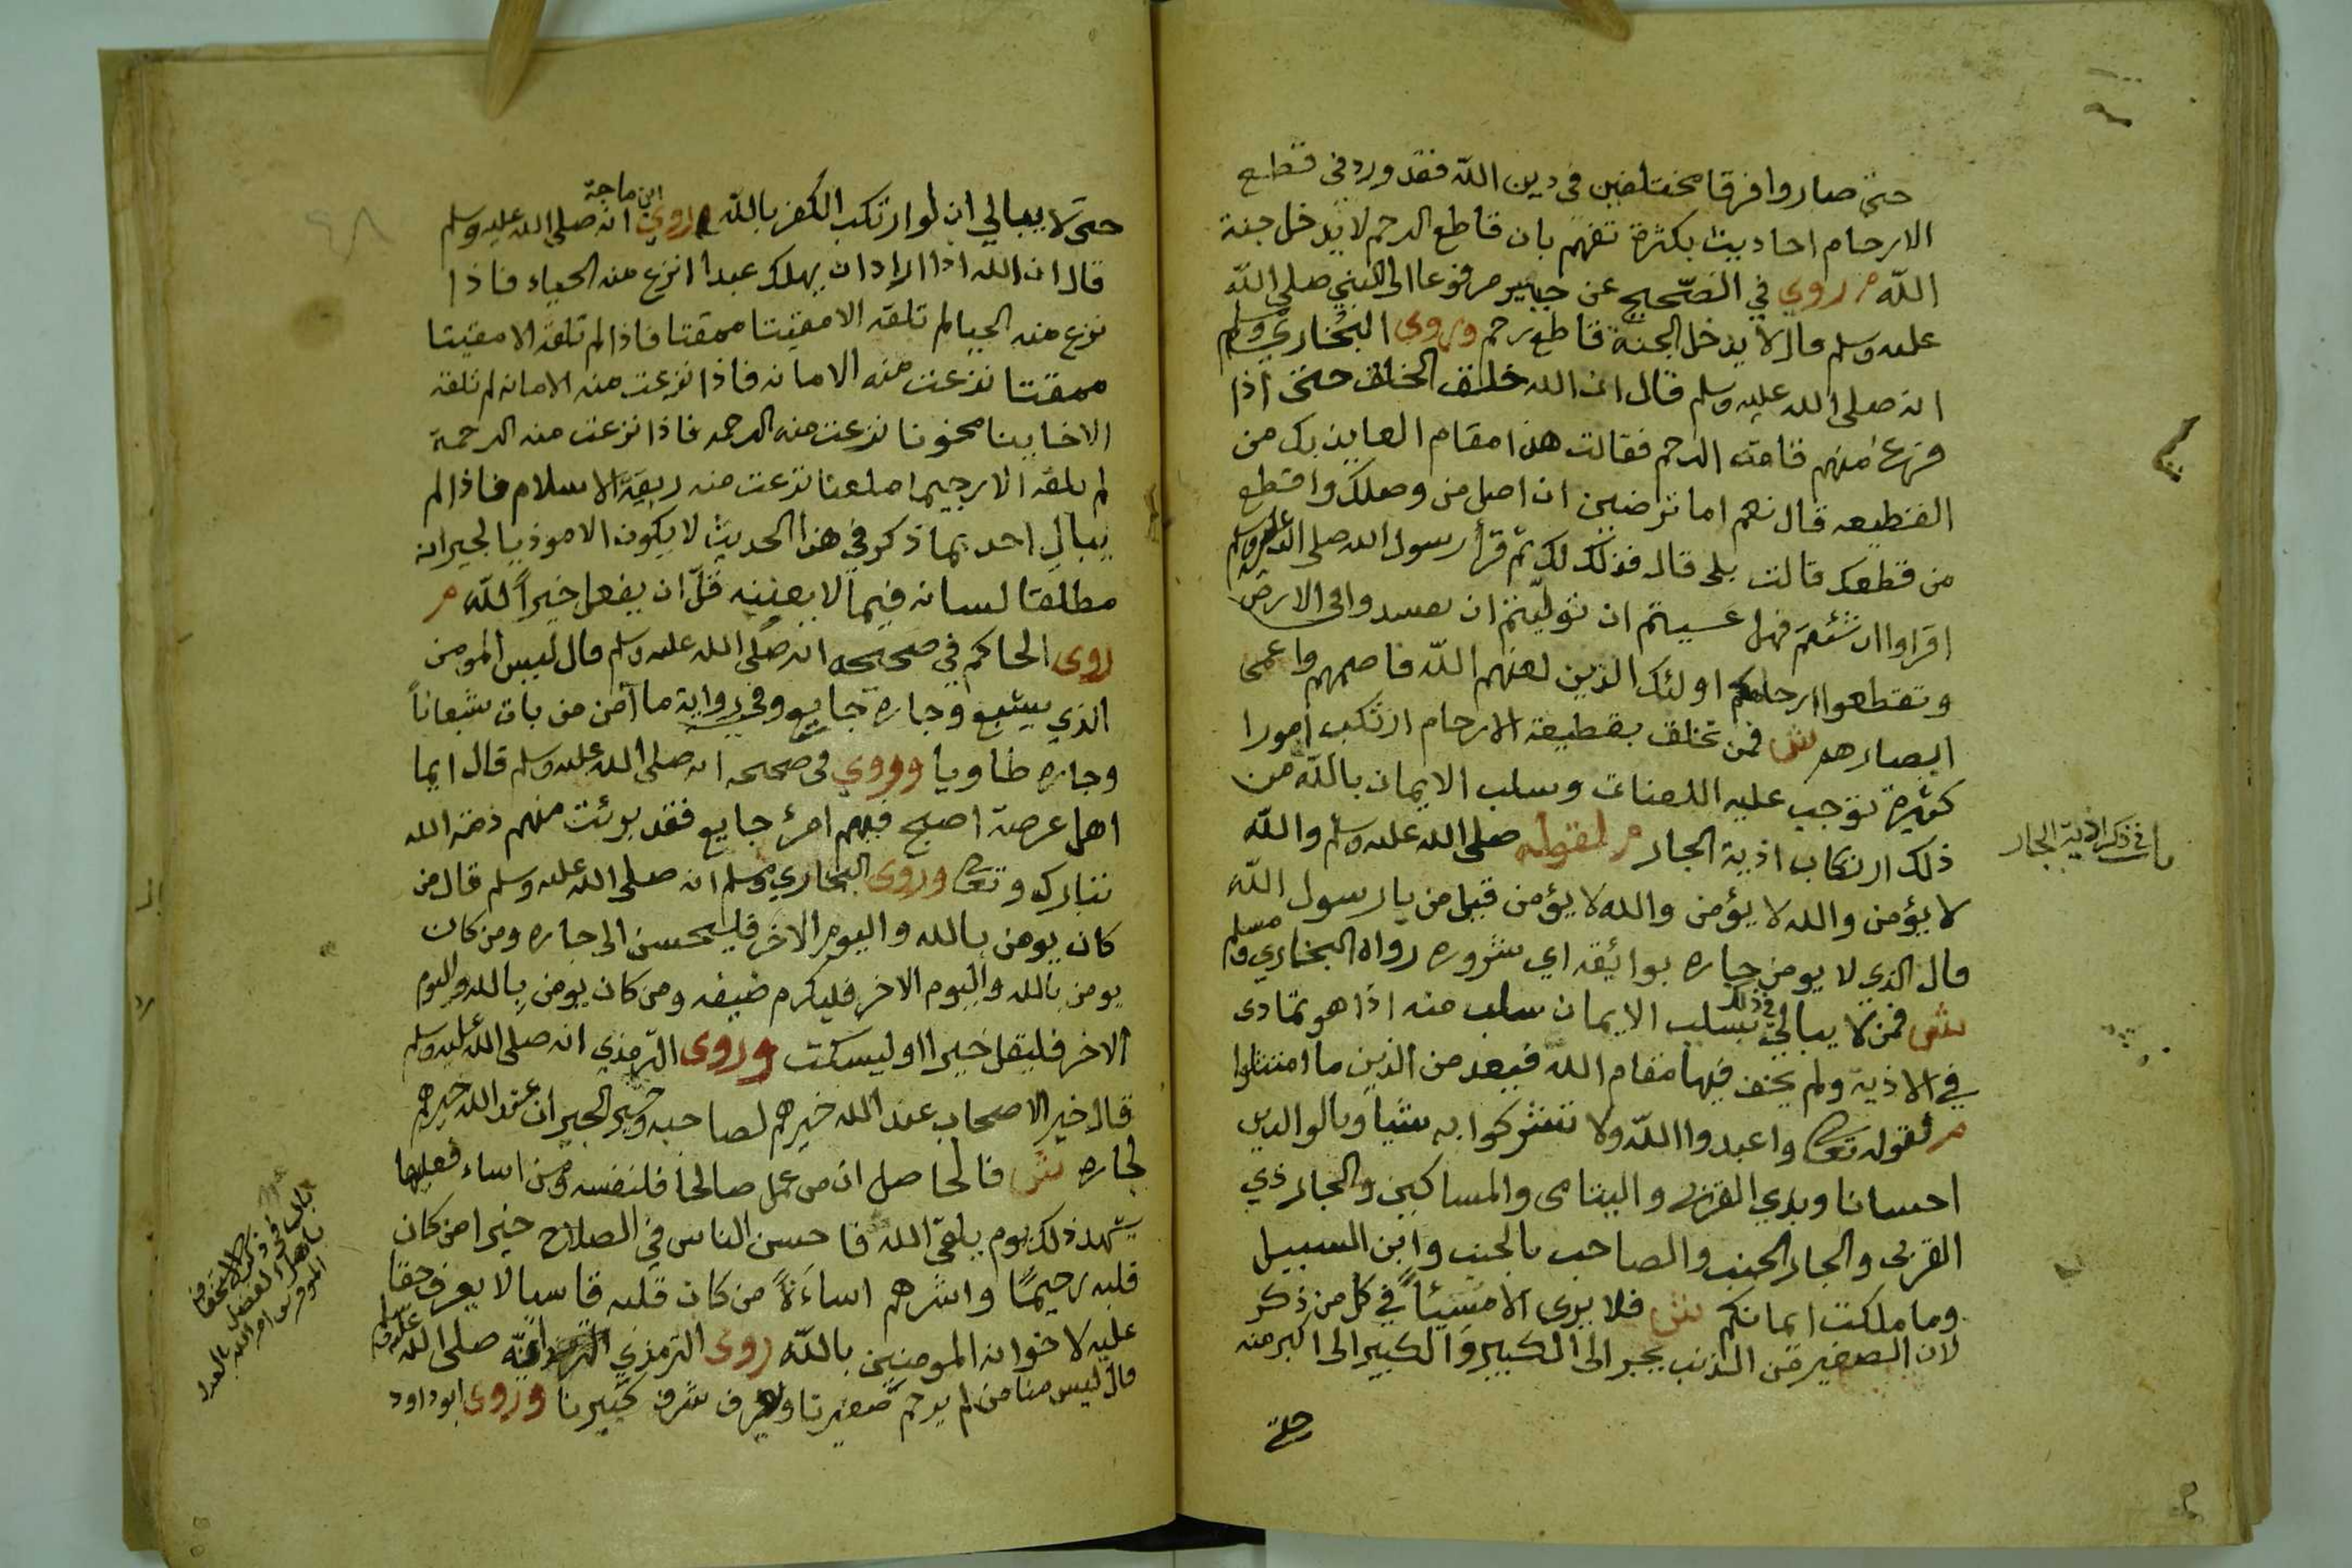 حتى صاروا فرقا مختلفين فى دين الله فقد ورد فى قطع
الارحام احاديث بكثرة تفهم بان قاطع الرحم لا يدخل جنة
الله م روي في الصّحيح عن جبير مرفوعا الى النبي صلى الله
عليه وسلم قال لا يدخل الجنة قاطع رحم وروى البخاري ومسلم
انه صلى الله عليه وسلم قال ان الله خلق الخلق حتى اذا
فرغ منهم قامت الرحم فقالت هذا مقام العايذ بك من
القطيعه قال نعم اما ترضين ان اصل من وصلك واقطع
من قطعك قالت بلى قال فذلك لك ثم قرأ رسول الله صلى الله عليه وسلم
اقراوا ان شئتم فهل عسيتم ان توليتم ان تفسدوا فى الارض
وتقطعوا ارحامكم اولئك الذين لعنهم الله فاصمهم واعمى
ابصارهم ش فمن تخلق بقطيعة الارحام ارتكب امورا
كثيرة توجب عليه اللعنات وسلب الايمان بالله من
ذلك ارتكاب اذية الجار م لقوله صلى الله عليه وسلم والله
لا يؤمن والله لا يؤمن والله لا يؤمن قيل من يا رسول الله
قال الذي لا يومن جاره بوائيقه اي شروره رواه البخاري ومسلم
ش فمن لا يبالي في ذلك بسلب الايمان سلب منه اذا هو تمادى
في الاذية ولم يخف فيها مقام الله فيعد من الذين ما امتثلوا
م لقوله تعالى واعبدوا الله ولا تشركوا به شيأ وبالوالدين
احسانا وبذي القربى واليتامى والمساكين والجار ذي
القربى والجار الجنب والصاحب بالجنب وابن السبيل
وما ملكت ايمانكم ش فلا يرى الا مسيئاً في كل من ذكر
لان الصغير من الذنب يجبر الى الكبير والكبير الى اكبر منه
في ذكر اذية الجار
حتى لا يبالي ان لو ارتكب الكفر بالله روي ابن ماجة انه صلى الله عليه وسلم
قال ان الله اذا اراد ان يهلك عبدا انزع منه الحياء فاذا
نزع منه الحيا لم تلقه الا مقيتا ممقتا فاذا لم تلقه الا مقيتا
ممقتا نزعت منه الامانه فاذا نزعت منه الامانه لم تلقه
الا خاينا مخونا نزعت منه الرحمه فاذا نزعت منه الرحمة
لم تلقه الا رجيما ملعنا نزعت منه ربقة الاسلام فاذا لم
يبال احد بما ذكر في هذا الحديث لا يكون الا موذيا لجيرانه
مطلقا لسانه فيما لا يعنيه قلّ ان يفعل خيراً لله م
روى الحاكم في صحيحه انه صلى الله عليه وسلم قال ليس المومن
الذي يشبع وجاره جايع وفي رواية ما آمن من بات شبعاناً
وجاره طاويا وروي فى صحيحه انه صلى الله عليه وسلم قال ايما
اهل عرصة اصبح فيهم امرئ جايع فقد برئت منهم ذمة الله
تبارك وتعالى وروى البخاري ومسلم انه صلى الله عليه وسلم قال من
كان يومن بالله واليوم الاخر فليحسن الى جاره ومن كان
يومن بالله واليوم الاخر فليكرم ضيفه ومن كان يومن بالله واليوم
الاخر فليقل خيرا او ليسكت وروى الترمذي انه صلى الله عليه وسلم
قال خير الاصحاب عند الله خيرهم لصاحبه وخير الجيران عند الله خيرهم
لجاره ش فالحاصل ان من عمل صالحا فلنفسه ومن اساء فعليها
يشهد ذلك يوم يلقى الله فاحسن الناس في الصلاح خيرا من كان
قلبه رحيمًا واشرهم اساءَةً من كان قلبه قاسيا لا يعرف حقا
عليه لاخوانه المومنين بالله روى الترمذي انّه صلى الله عليه وسلم
قال ليس منا من لم يرحم صغيرنا ويعرف شرف كبيرنا وروى ابو داود